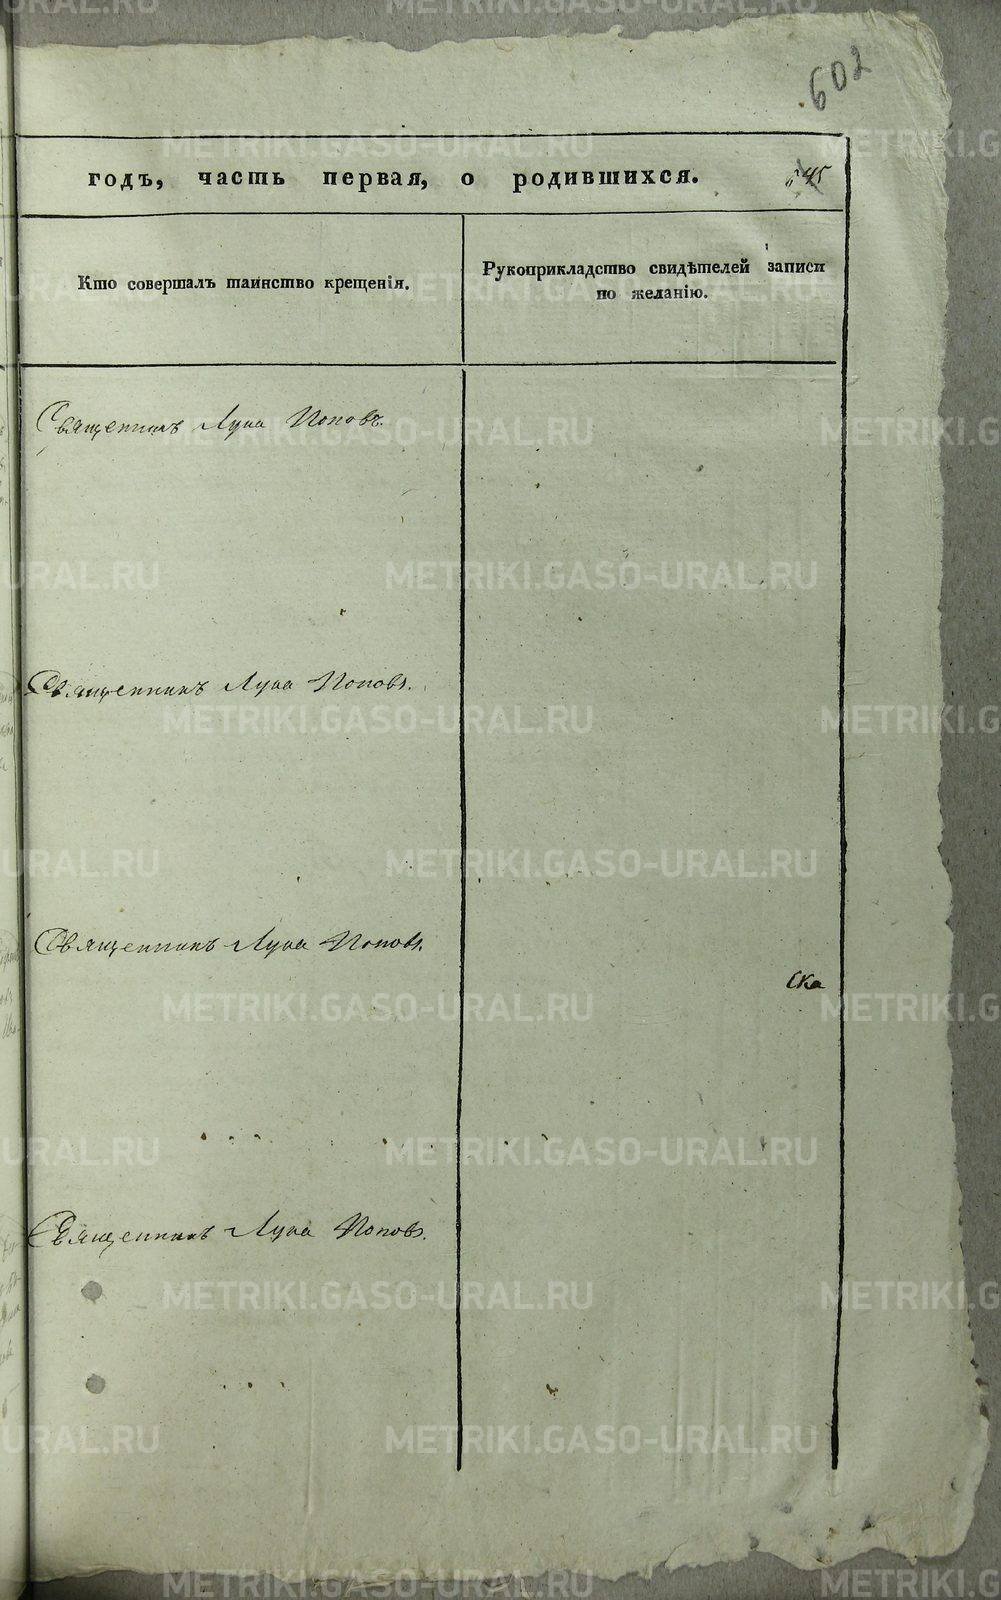 602
годъ, часть первая, о родившихся.
545
Кто совершалъ таинство крещенія.
Рукоприкладство свидѣтелей записи
по желанію.
Священникъ Лука Поповъ.
Священникъ Лука Поповъ.
Священникъ Лука Поповъ.
ска
Священникъ Лука Поповъ.
METRIKI.GASO-URAL.RU